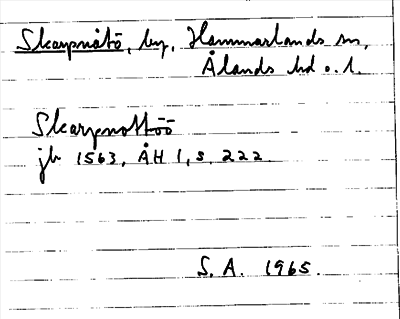 Skarpnåtö, by, Hammarlands sn,
Ålands hd o. l.
Skarpnottöö
jb 1563, ÅH 1, s. 222
S. A. 1965.